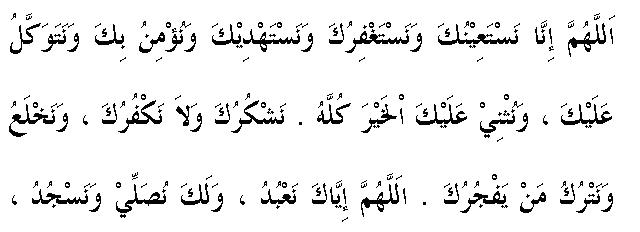 اَللَّهُمَّ إِنَّا نَسْتَعِيْنُكَ وَنَسْتَغْفِرُكَ وَنَسْتَهْدِيْكَ وَنُؤْمِنُ بِكَ وَنَتَوَكَّلُ
عَلَيْكَ ، وَنُثْنِيْ عَلَيْكَ اْلخَيْرَ كُلَّهُ . نَشْكُرُكَ وَلاَ نَكْفُرُكَ ، وَنَخْلَعُ
وَنَتْرُكُ مَنْ يَفْجُرُكَ . اَللَّهُمَّ إِيَّاكَ نَعْبُدُ ، وَلَكَ نُصَلِّيْ وَنَسْجُدُ ،